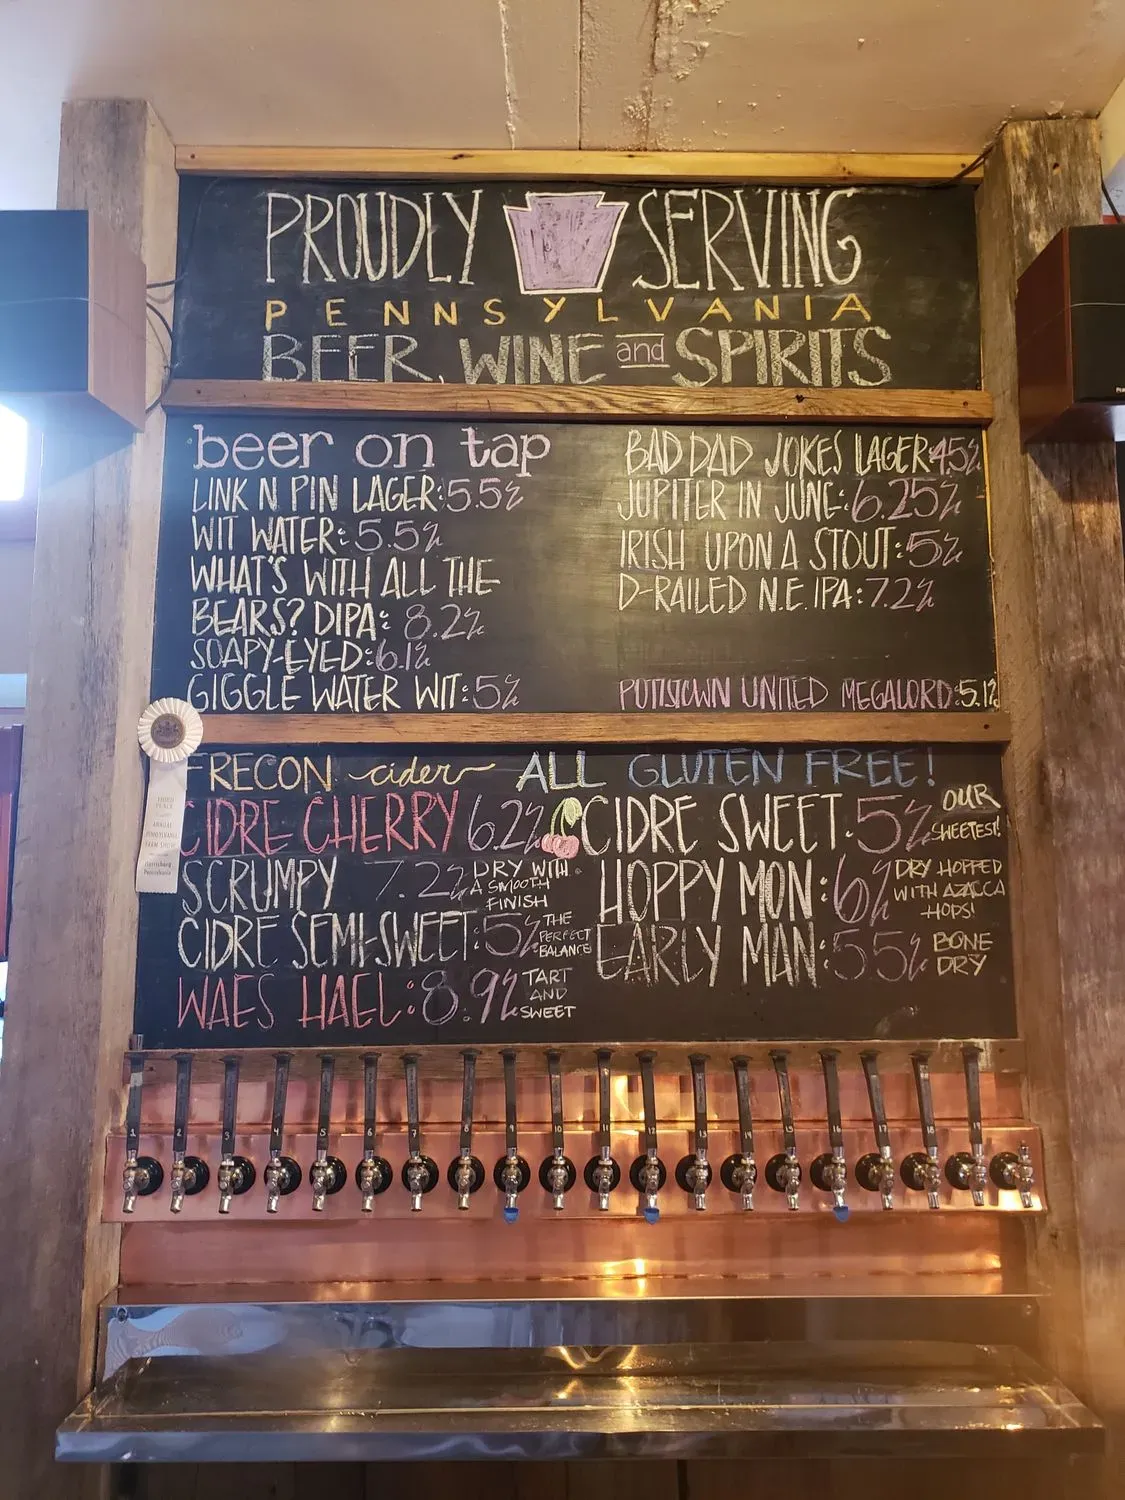 PROUDLY SERVING
PENNSYLVANIA
BEER, WINE and SPIRITS
beer on tap
LINK N PIN LAGER: 5.5%
WIT WATER: 5.5%
WHAT'S WITH ALL THE
BEARS? DIPA: 8.2%
SOAPY-EYED: 6.1%
GIGGLE WATER WIT: 5%
BAD DAD JOKES LAGER: 4.5%
JUPITER IN JUNE: 6.25%
IRISH UPON A STOUT: 5%
D-RAILED N.E. IPA: 7.2%
POTTSTOWN UNITED MEGALORD: 5.1%
FRECON cider ALL GLUTEN FREE!
CIDRE CHERRY 6.2%
SCRUMPY 7.2% DRY WITH
A SMOOTH
FINISH
CIDRE SEMI-SWEET: 5% THE
PERFECT
BALANCE
WAES HAEL: 8.9% TART
AND
SWEET
CIDRE SWEET. 5% OUR
SWEETEST!
HOPPY MON: 6% DRY HOPPED
WITH AZACCA
HOPS!
EARLY MAN: 5.5% BONE
DRY
THIRD
PLACE
ANNUAL
PENNSYLVANIA
FARM SHOW
Harrisburg
Pennsylvania
1 2 3 4 5 6 7 8 9 10 11 12 13 14 15 16 17 18 19